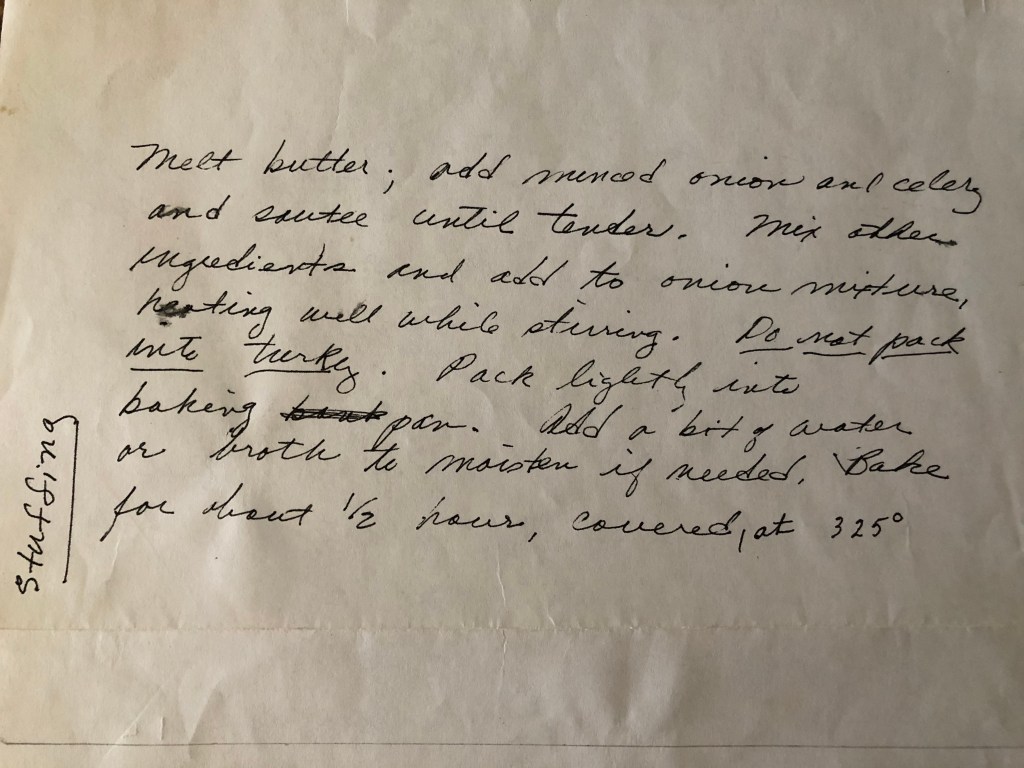 Stuffing
Melt butter; add minced onion and celery
and sautee until tender. Mix other
ingredients and add to onion mixture,
heating well while stirring. Do not pack
into turkey. Pack lightly into
baking pan. Add a bit of water
or broth to moisten if needed. Bake
for about 1/2 hour, covered, at 325°